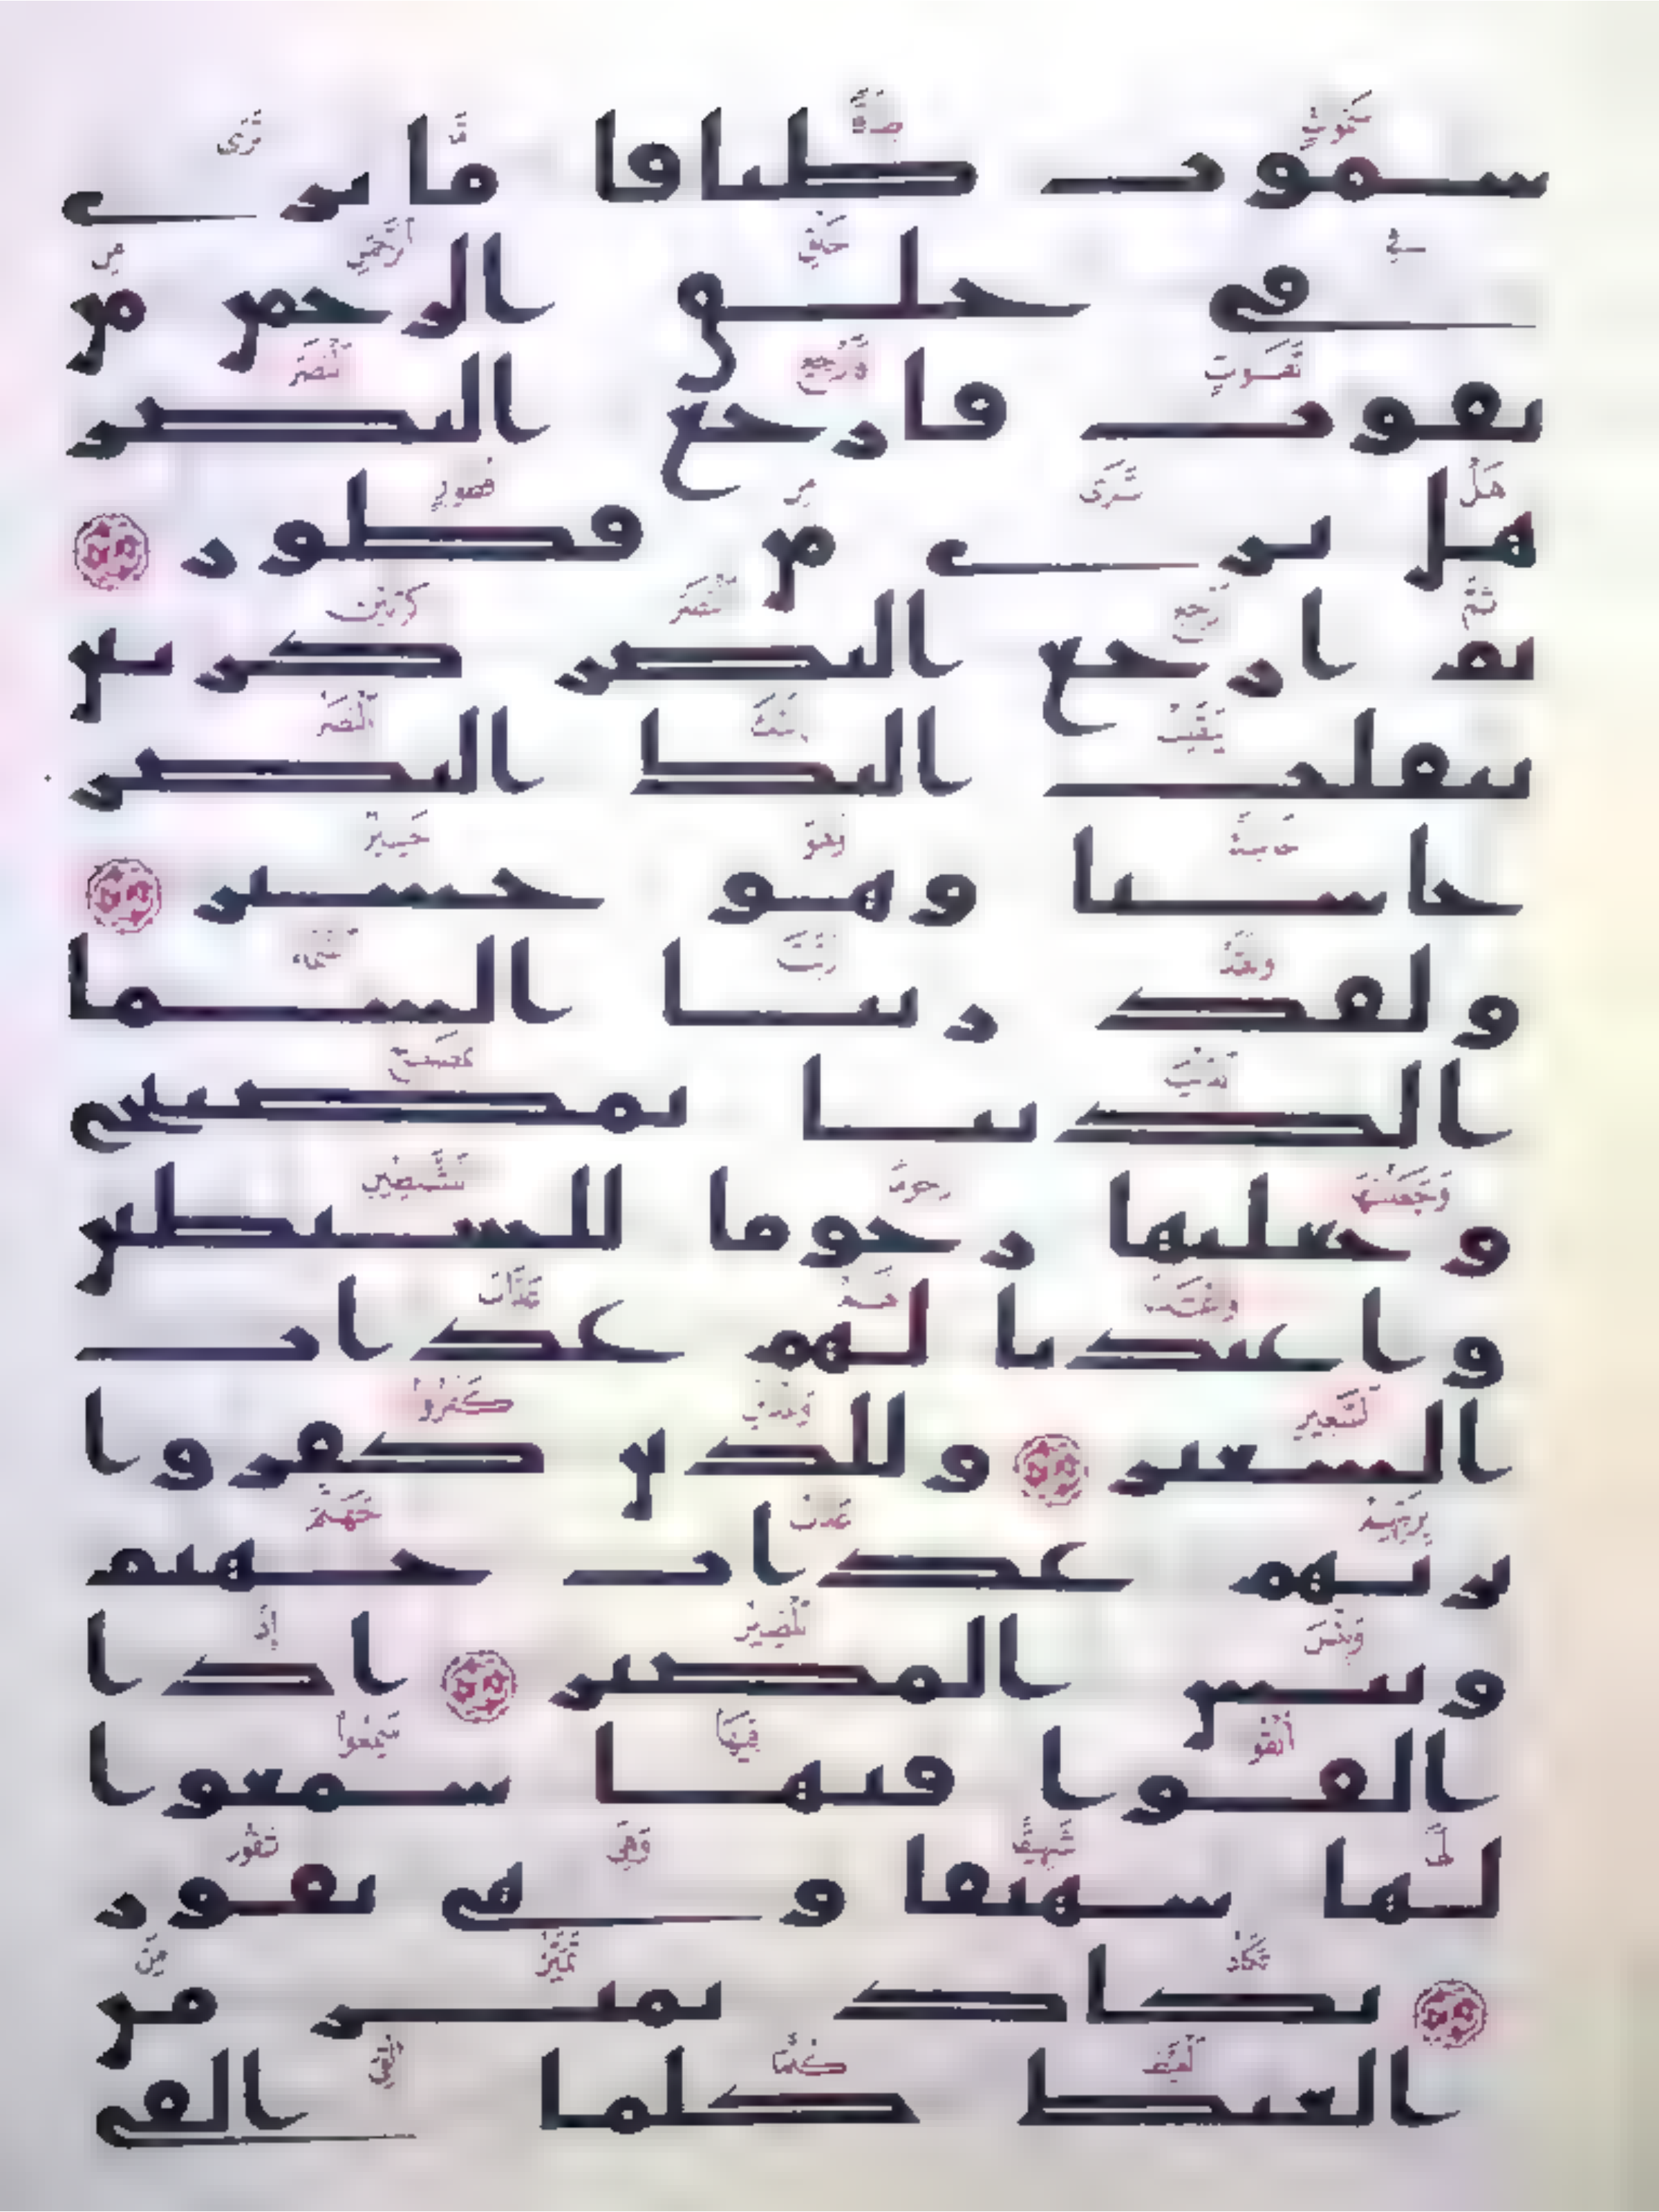 سموت طباقا ما ترى
في خلق الرحمن من
تفوت فارجع البصر
هل ترى من فطور
ثم ارجع البصر كرتين
ينقلب اليك البصر
خاسيا وهو حسير
ولقد زينا السما
الدنيا بمصبيح
وجعلنها رجوما للشيطين
واعتدنا لهم عذاب
السعير وللذين كفروا
بربهم عذاب جهنم
وبيس المصير اذا
القوا فيها سمعوا
لها شهيقا وهي تفور
تكاد تميز من
الغيظ كلما القي